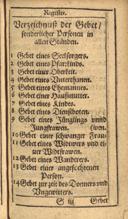 Register.
Verzeichnuß der Gebet/
sonderlicher Personen in
allen Ständen.
1 Gebet eines Seelsorgers.
2 Gebet eines Pfarrkinds.
3 Gebet einer Oberkeit.
4 Gebet eines Unterthanen.
5 Gebet eines Ehemannes.
6 Gebet einer Haußmutter.
7 Gebet eines Kindes.
8 Gebet eines Dienstboten.
9 Gebet eines Jünglings und
Jungfrauen.
10 Gebet einer schwangern Frauen.
11 Gebet eines Widwers und ei-
ner Widfrauen.
12 Gebet eines Wanderers.
13 Gebet einer angefochtenen
Person.
14 Gebet zur zeit des Donners und
Ungewitters.
Gebet